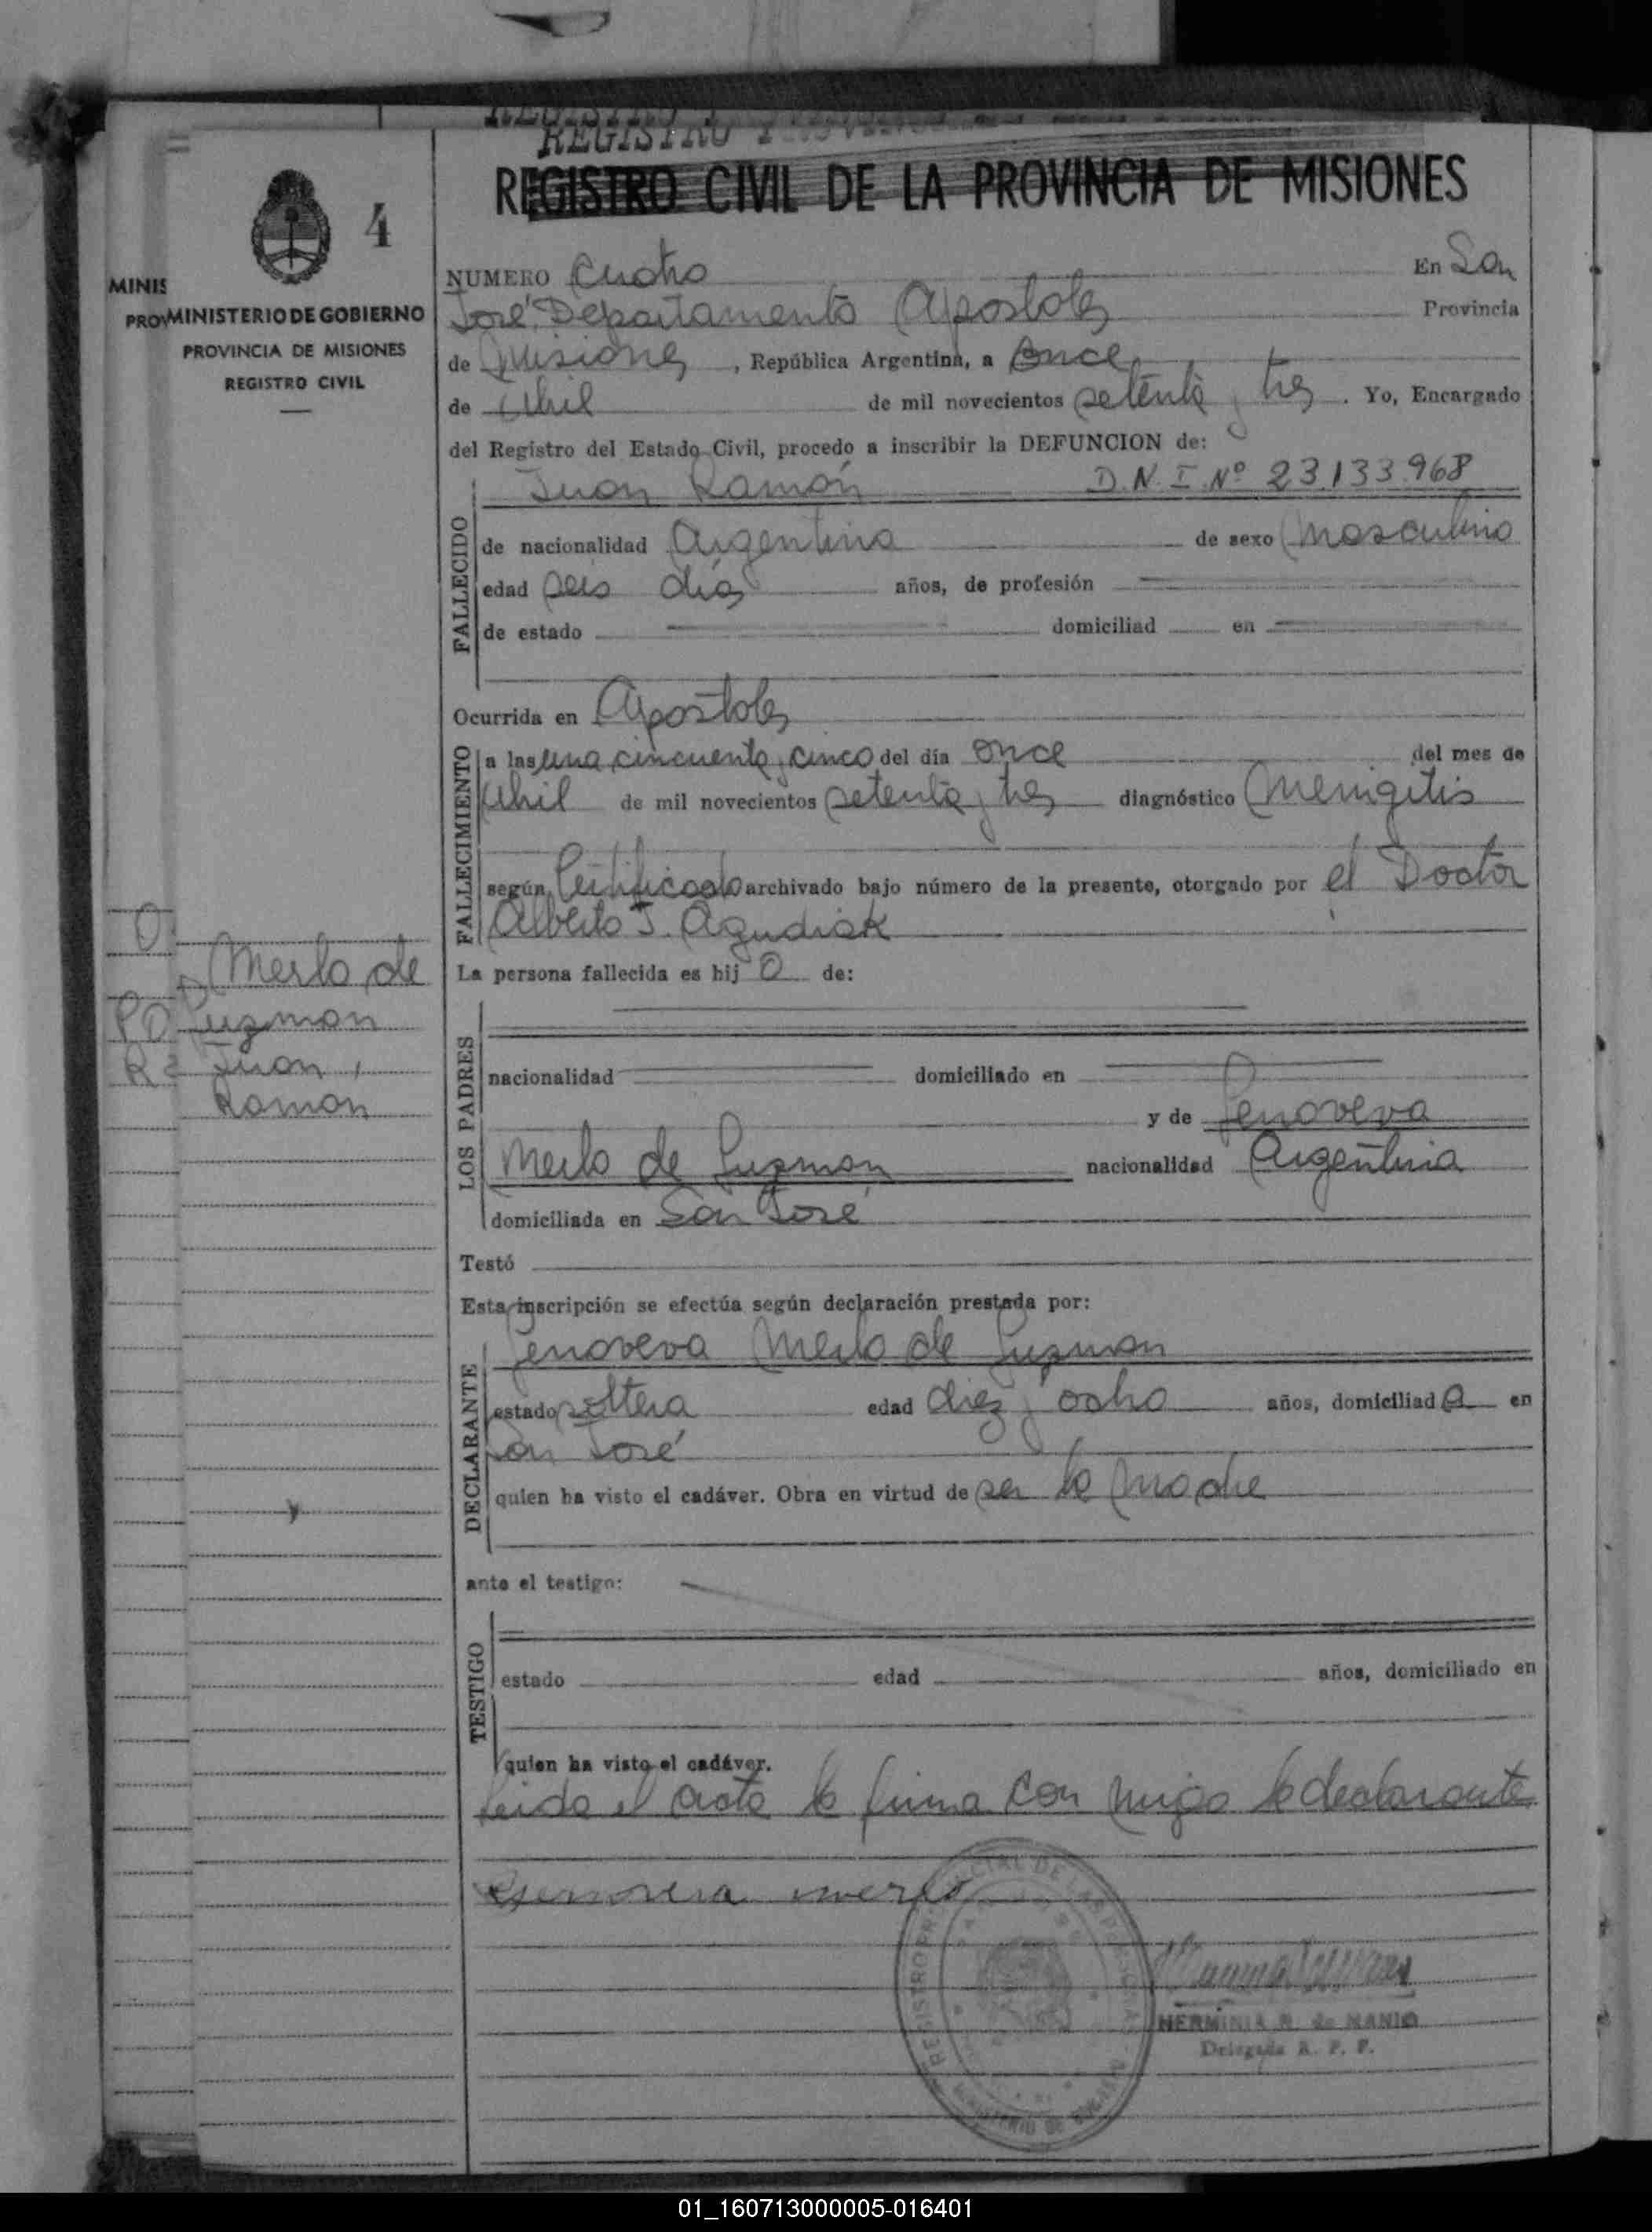 REGISTRO
REGISTRO CIVIL DE LA PROVINCIA DE MISIONES
4
MINIS
PROV
MINISTERIO DE GOBIERNO
PROVINCIA DE MISIONES
REGISTRO CIVIL
NUMERO Cuatro En San
José, Departamento Apostoles Provincia
de Misiones, República Argentina, a once
de Abril de mil novecientos setenta y tres. Yo, Encargado
del Registro del Estado Civil, procedo a inscribir la DEFUNCION de:
Juan Ramón D.N.I. Nº 23.133.968
FALLECIDO
de nacionalidad Argentina de sexo Masculino
edad seis días años, de profesión
de estado domiciliad en
Ocurrida en Apostoles
FALLECIMIENTO
a las una cincuenta y cinco del día once del mes de
Abril de mil novecientos setenta y tres diagnóstico Menigitis
según Certificado archivado bajo número de la presente, otorgado por el Doctor
Alberto J. Agudiak
La persona fallecida es hij o de:
Merlo de
Guzman
Juan
Ramon
LOS PADRES
nacionalidad domiciliado en
y de Genoveva
Merlo de Guzman nacionalidad Argentina
domiciliada en San José
Testó
Esta inscripción se efectúa según declaración prestada por:
DECLARANTE
Genoveva Merlo de Guzman
estado soltera edad diez y ocho años, domiciliad a en
San José
quien ha visto el cadáver. Obra en virtud de ser la madre
ante el testigo:
TESTIGO
estado edad años, domiciliado en
quien ha visto el cadáver.
Leida el acta la firma con migo la declarante
Genoveva merlo
HERMINIA R. de NANIO
Delegada R. P. P.
01_160713000005-016401